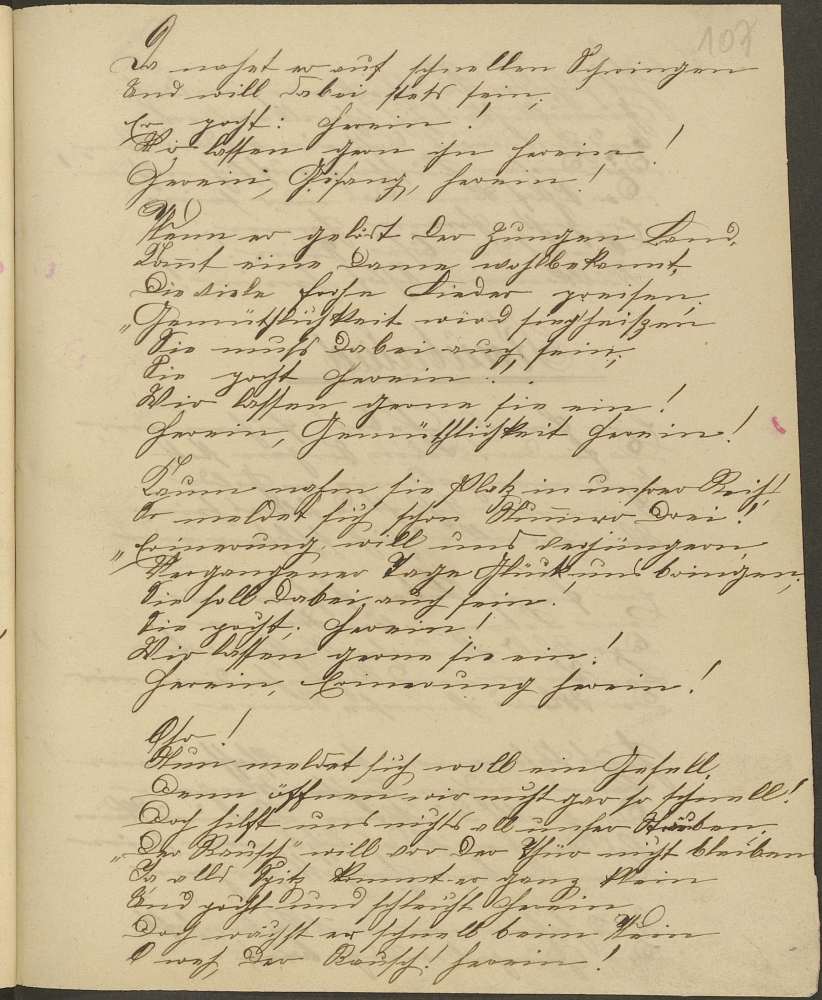 107
Da nahet er auf schnellen Schwingen
Und will dabei stets sein,
Er pocht: Herein!
Wir lassen gern ihn herein!
Herein, Gesang, herein!
Wenn er gelöst der Zungen Band,
Kommt eine Dame wohlbekannt,
Die viele frohe Lieder preisen,
"Gemüthlichkeit wird sie geheißen
Sie muß dabei auch sein;
Sie pocht herein:
Wir lassen gerne sie ein!
Herein, Gemüthlichkeit herein!
Kaum nahm sie Platz in unsrer Reih'
So meldet sich schon Nummro Drei!
"Erinnerung, will uns verjüngern,
Vergangener Tage Glück uns bringen,
Sie soll dabei auch sein!
Sie pocht: Herein!
Wir lassen gerne sie ein!
Herein, Erinnerung herein!
Oho!
Nun meldet sich wohl ein Gesell,
Dem öffnen wir nicht gar so schnell!
Doch hilft uns nichts all unser Sträuben,
"Der Rausch" will vor der Thür nicht bleiben
Ja als Spitz kommt er ganz klein
Und pocht und schleicht herein
Doch wächst er schnell beim Wein
O weh der Rausch! herein!